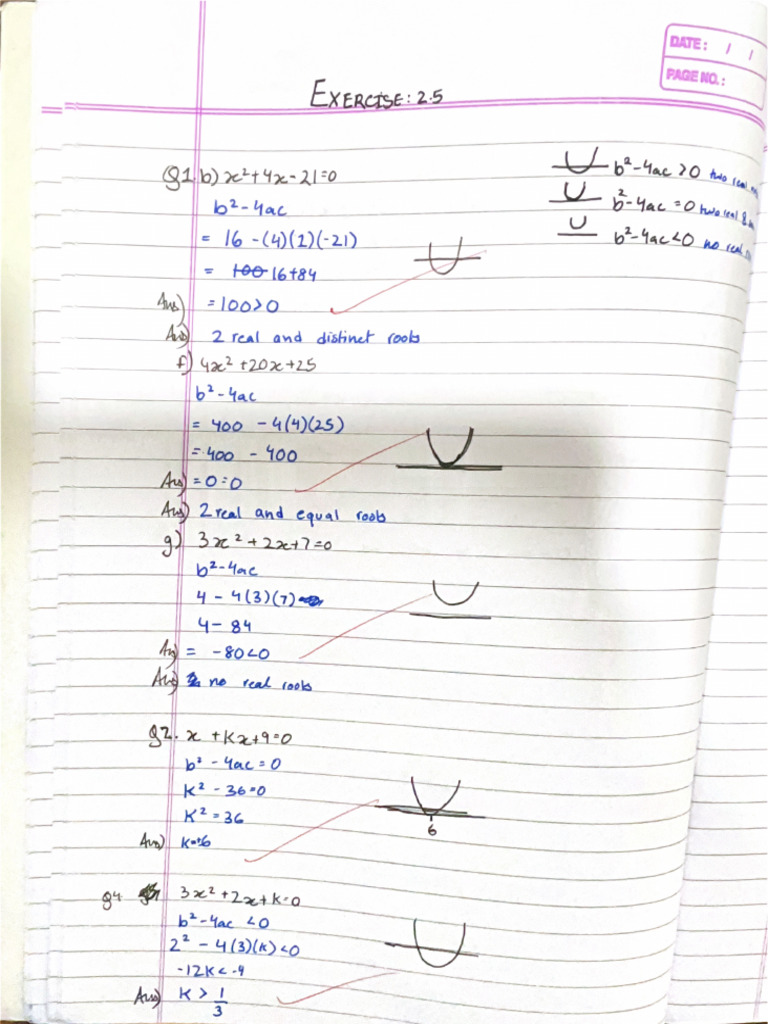 DATE: / /
PAGE NO.:
EXERCISE: 2.5
b²-4ac >0 two real
b²-4ac =0 two real &
b²-4ac <0 no real
Q1. b) x²+4x-21=0
b²-4ac
= 16 -(4)(1)(-21)
= 100 16+84
Ans) =100>0
Ans) 2 real and distinct roots
f) 4x²+20x+25
b²-4ac
= 400 -4(4)(25)
= 400 - 400
Ans) =0=0
Ans) 2 real and equal roots
g) 3x²+2x+7=0
b²-4ac
4 - 4(3)(7)
4- 84
Ans) = -80<0
Ans) no real roots
Q2. x +Kx+9=0
b² - 4ac=0
K² - 36=0
K² = 36
6
Ans) K=±6
Q4 3x²+2x+K=0
b²-4ac <0
2² - 4(3)(K)<0
-12K<-4
Ans) K > 1/3